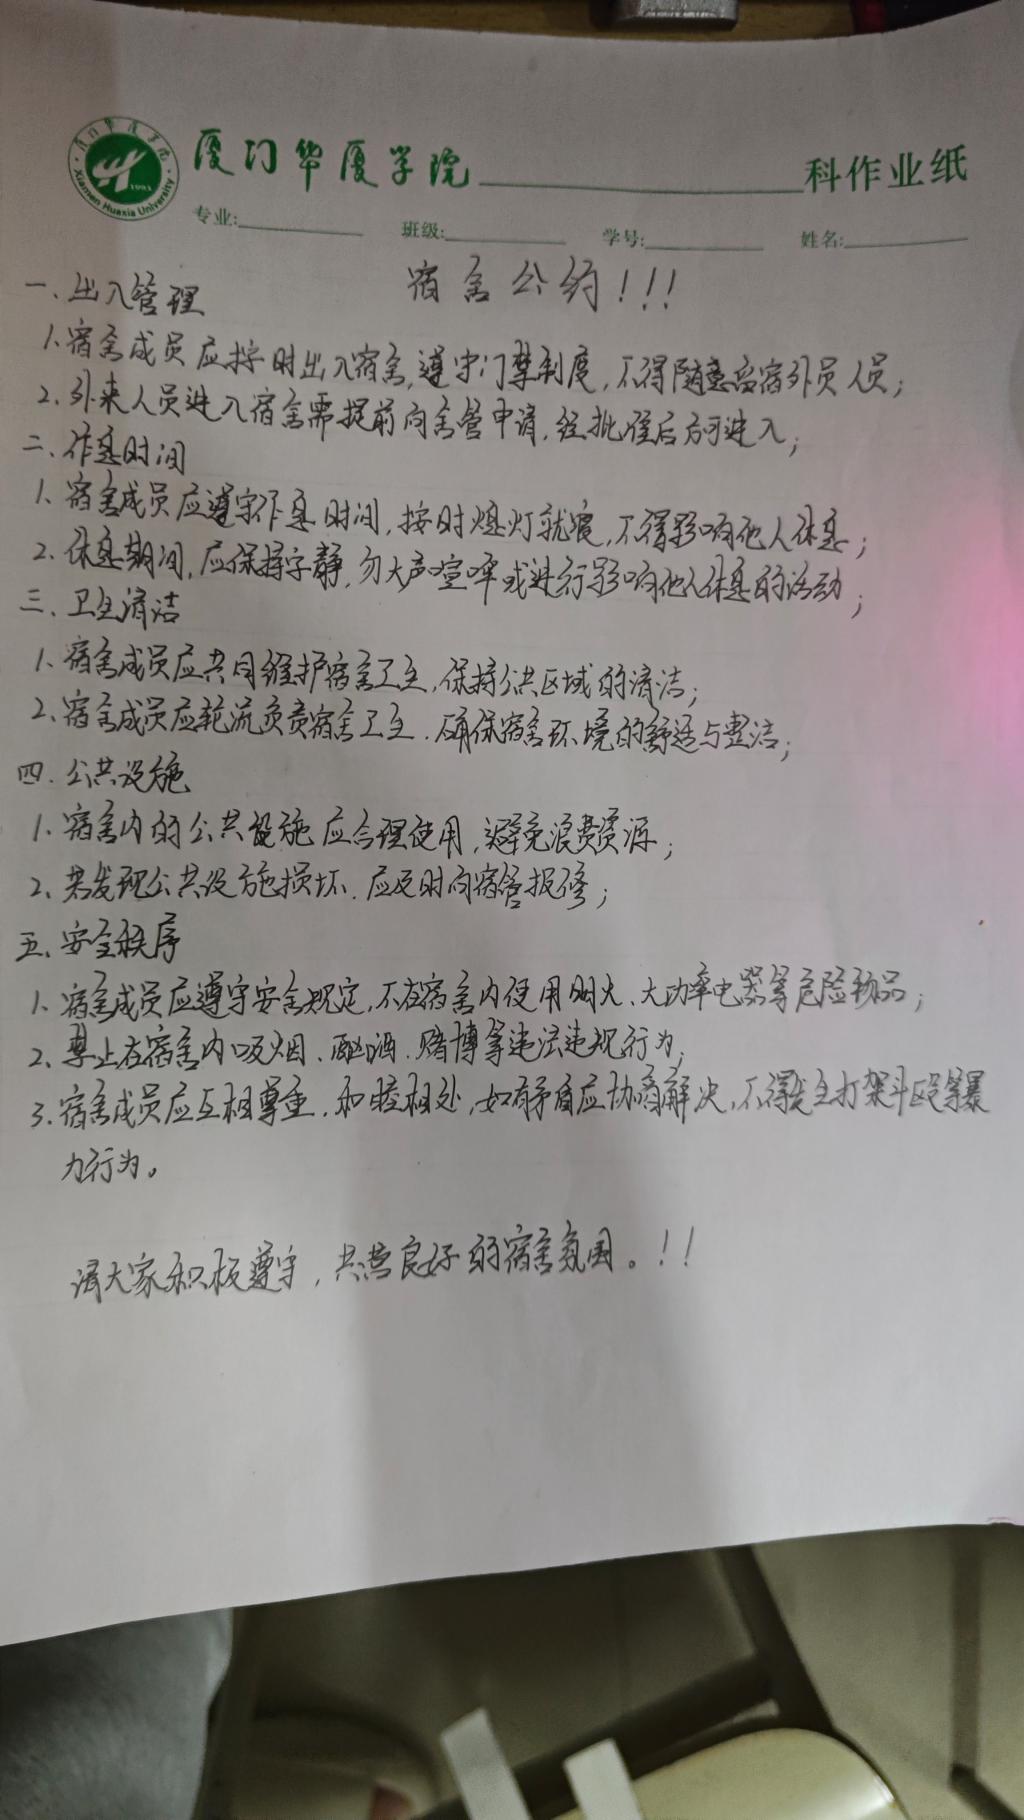 厦门华厦学院 科作业纸
厦门华厦学院
1993
Xiamen Huaxia University
专业: 班级: 学号: 姓名:
宿舍公约!!!
一、出入管理
1. 宿舍成员应按时出入宿舍,遵守门禁制度,不得随意留宿外员人员;
2. 外来人员进入宿舍需提前向舍管申请,经批准后方可进入;
二、作息时间
1. 宿舍成员应遵守作息时间,按时熄灯就寝,不得影响他人休息;
2. 休息期间,应保持安静,勿大声喧哗或进行影响他人休息的活动;
三、卫生清洁
1. 宿舍成员应共同维护宿舍卫生,保持公共区域的清洁;
2. 宿舍成员应轮流负责宿舍卫生,确保宿舍环境的舒适与整洁;
四、公共设施
1. 宿舍内的公共设施应合理使用,避免浪费资源;
2. 若发现公共设施损坏,应及时向宿管报修;
五、安全秩序
1. 宿舍成员应遵守安全规定,不在宿舍内使用明火、大功率电器等危险物品;
2. 禁止在宿舍内吸烟、酗酒、赌博等违法违规行为;
3. 宿舍成员应互相尊重,和睦相处,如有矛盾应协商解决,不得发生打架斗殴等暴
力行为。
请大家积极遵守,共营良好的宿舍氛围。!!